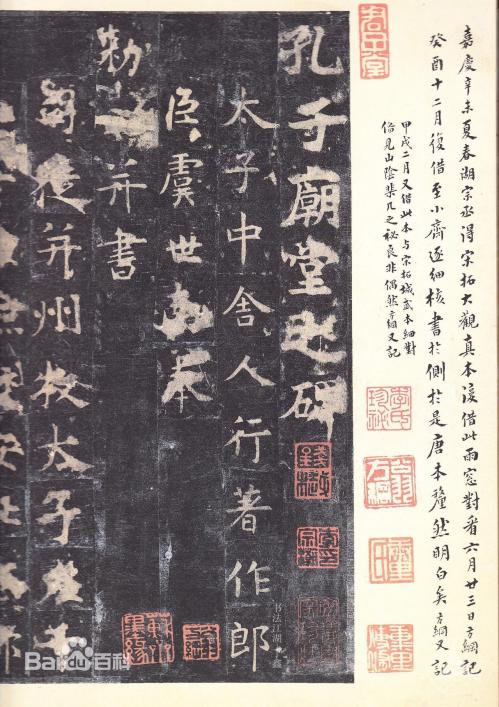 嘉慶辛未夏春湖宗丞得宋拓大觀真本復借此雨窓對看六月廿三日方綱記
癸酉十二月復借至小齋逐細核書於側於是唐本釐然明白矣方綱又記
甲戌二月又借此本与宋拓城武本細對
見山陰棐几之祕良非偶然方綱又記
李氏珍祕
翁方綱
孔子廟堂之碑
太子中舍人行著作郎
臣虞世南奉
勅并書
司徒并州牧太子左千
书法江湖
Bai百科